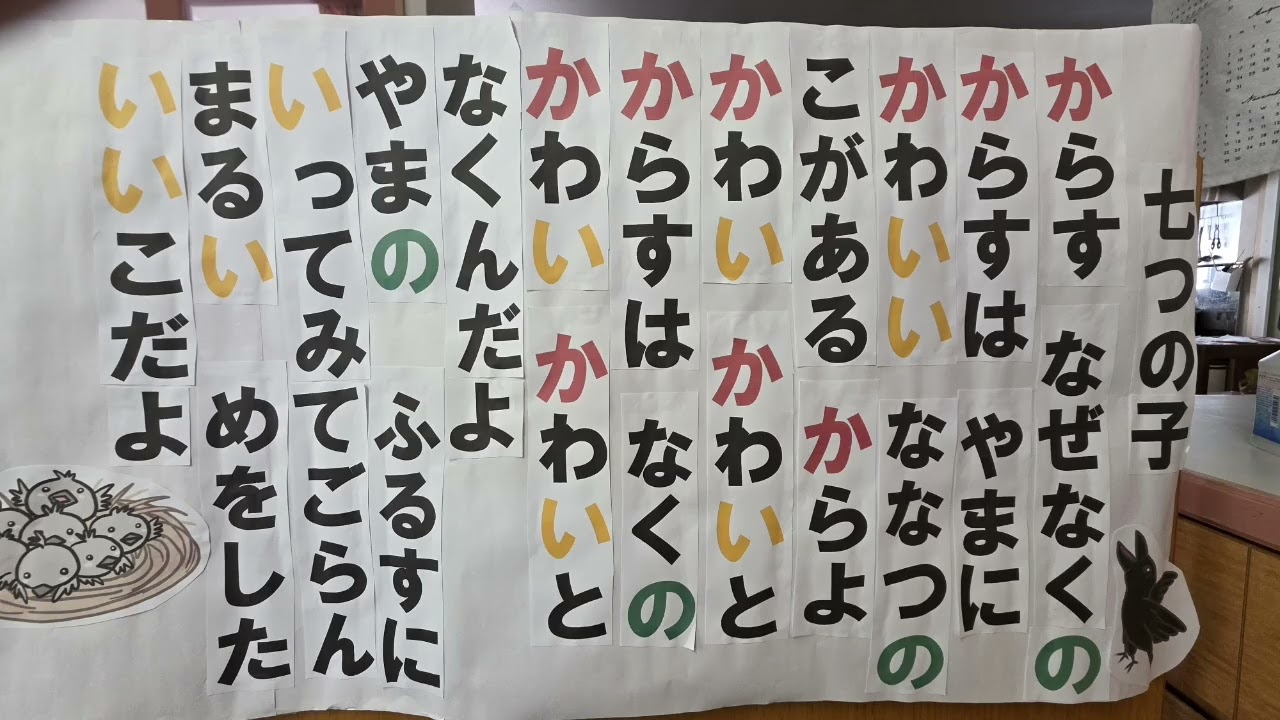 七つの子
からす　なぜなくの
からすは　やまに
かわいい　ななつの
こがある　からよ
かわい　かわいと
からすは　なくの
かわい　かわいと
なくんだよ
やまの　ふるすに
いってみてごらん
まるい　めをした
いいこだよ